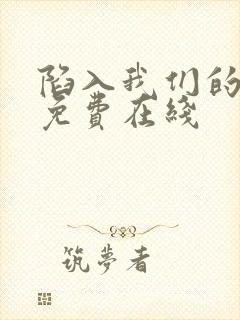 陷入我们的
免費在綫
筑夢者